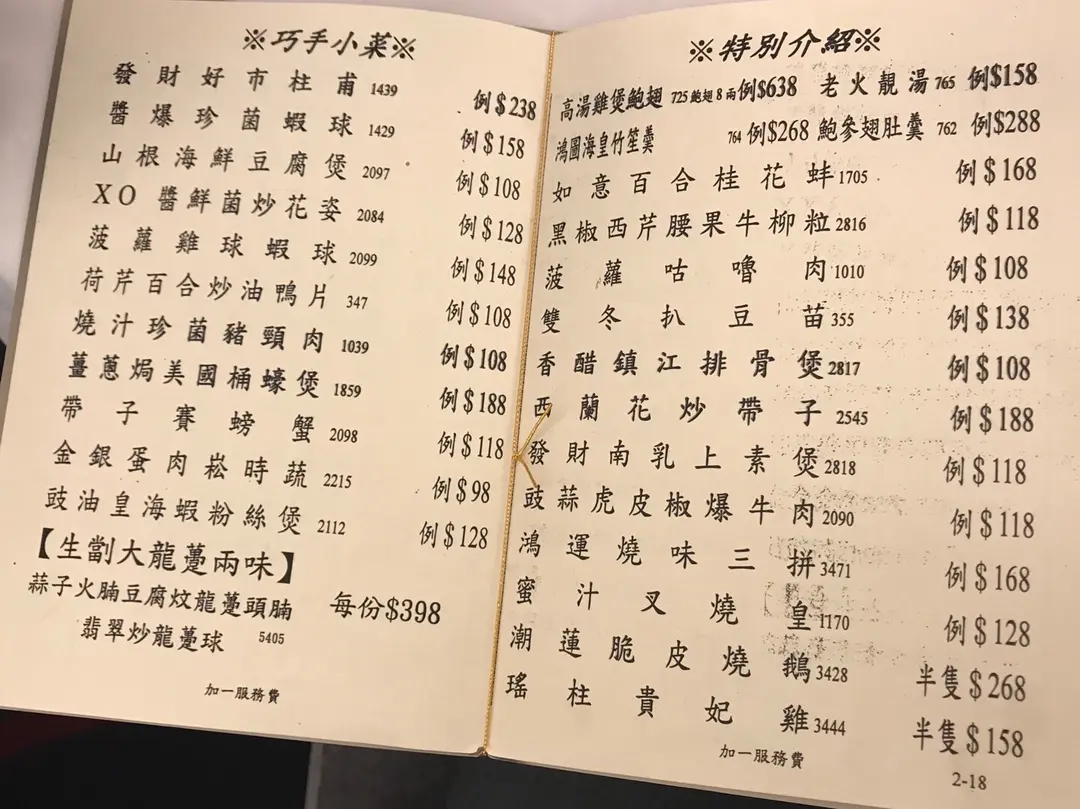 ※巧手小菜※
發財好市柱甫 1439 例$238
醬爆珍菌蝦球 1429 例$158
山根海鮮豆腐煲 2097 例$108
XO醬鮮菌炒花姿 2084 例$128
菠蘿雞球蝦球 2099 例$148
荷芹百合炒油鴨片 347 例$108
燒汁珍菌豬頸肉 1039 例$108
薑蔥焗美國桶蠔煲 1859 例$188
帶子賽螃蟹 2098 例$118
金銀蛋肉崧時蔬 2215 例$98
豉油皇海蝦粉絲煲 2112 例$128
【生劏大龍躉兩味】
蒜子火腩豆腐炆龍躉頭腩 每份$398
翡翠炒龍躉球 5405
加一服務費
※特別介紹※
高湯雞煲鮑翅 725 鮑翅8兩 例$638 老火靚湯 765 例$158
鴻圖海皇竹笙羹 764 例$268 鮑參翅肚羹 762 例$288
如意百合桂花蚌 1705 例$168
黑椒西芹腰果牛柳粒 2816 例$118
菠蘿咕嚕肉 1010 例$108
雙冬扒豆苗 355 例$138
香醋鎮江排骨煲 2817 例$108
西蘭花炒帶子 2545 例$188
發財南乳上素煲 2818 例$118
豉蒜虎皮椒爆牛肉 2090 例$118
鴻運燒味三拼 3471 例$168
蜜汁叉燒皇 1170 例$128
潮蓮脆皮燒鵝 3428 半隻$268
瑤柱貴妃雞 3444 半隻$158
加一服務費
2-18